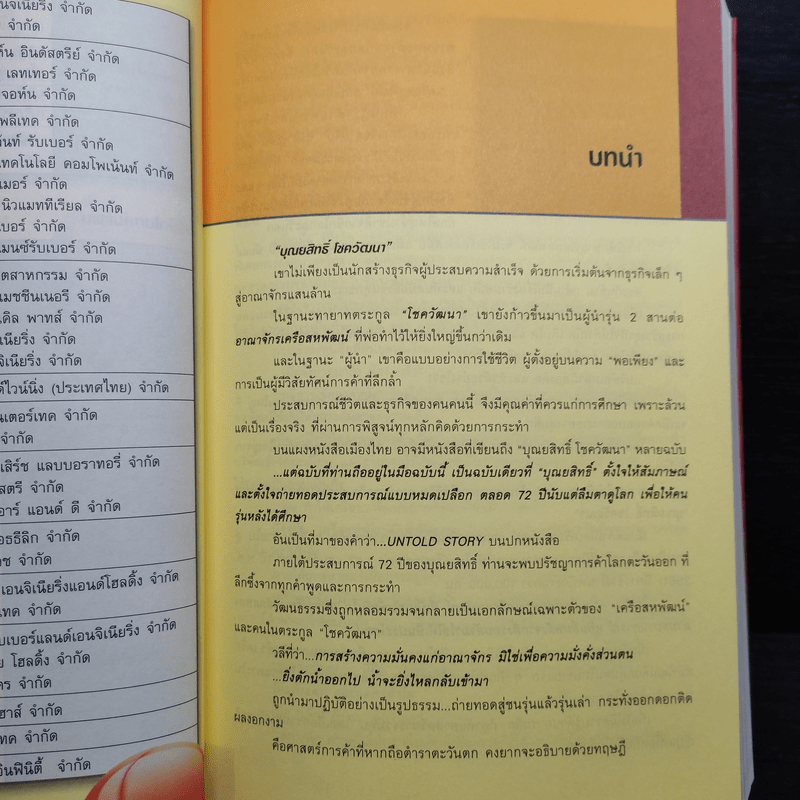 จำกัด
จำกัด
อินดัสตรีย์ จำกัด
เลทเทอร์ จำกัด
จอห์น จำกัด
จำกัด
รับเบอร์ จำกัด
เทคโนโลยี คอมโพเน้นท์ จำกัด
จำกัด
จำกัด
จำกัด
จำกัด
จำกัด
จำกัด
พาทส์ จำกัด
จำกัด
จำกัด
(ประเทศไทย) จำกัด
จำกัด
จำกัด
แลบบอราทอรี่ จำกัด
จำกัด
แอนด์ ดี จำกัด
จำกัด
จำกัด
เอนจิเนียริ่งแอนด์โฮลดิ้ง จำกัด
จำกัด
จำกัด
โฮลดิ้ง จำกัด
จำกัด
จำกัด
จำกัด
จำกัด
บทนำ
"บุณยสิทธิ์ โชควัฒนา"
เขาไม่เพียงเป็นนักสร้างธุรกิจผู้ประสบความสำเร็จ ด้วยการเริ่มต้นจากธุรกิจเล็ก ๆ
สู่อาณาจักรแสนล้าน
ในฐานะทายาทตระกูล "โชควัฒนา" เขายังก้าวขึ้นมาเป็นผู้นำรุ่น 2 สานต่อ
อาณาจักรเครือสหพัฒน์ ที่พ่อทำไว้ให้ยิ่งใหญ่ขึ้นกว่าเดิม
และในฐานะ "ผู้นำ" เขาคือแบบอย่างการใช้ชีวิต ผู้ตั้งอยู่บนความ "พอเพียง" และ
การเป็นผู้มีวิสัยทัศน์การค้าที่ลึกล้ำ
ประสบการณ์ชีวิตและธุรกิจของคนคนนี้ จึงมีคุณค่าที่ควรแก่การศึกษา เพราะล้วน
แต่เป็นเรื่องจริง ที่ผ่านการพิสูจน์ทุกหลักคิดด้วยการกระทำ
บนแผงหนังสือเมืองไทย อาจมีหนังสือที่เขียนถึง "บุณยสิทธิ์ โชควัฒนา" หลายฉบับ
...แต่ฉบับที่ท่านถืออยู่ในมือฉบับนี้ เป็นฉบับเดียวที่ "บุณยสิทธิ์" ตั้งใจให้สัมภาษณ์
และตั้งใจถ่ายทอดประสบการณ์แบบหมดเปลือก ตลอด 72 ปีนับแต่ลืมตาดูโลก เพื่อให้คน
รุ่นหลังได้ศึกษา
อันเป็นที่มาของคำว่า...UNTOLD STORY บนปกหนังสือ
ภายใต้ประสบการณ์ 72 ปีของบุณยสิทธิ์ ท่านจะพบปรัชญาการค้าโลกตะวันออก ที่
ลึกซึ้งจากทุกคำพูดและการกระทำ
วัฒนธรรมซึ่งถูกหลอมรวมจนกลายเป็นเอกลักษณ์เฉพาะตัวของ "เครือสหพัฒน์"
และคนในตระกูล "โชควัฒนา"
วลีที่ว่า...การสร้างความมั่นคงแก่อาณาจักร มิใช่เพื่อความมั่งคั่งส่วนตน
...ยิ่งตักน้ำออกไป น้ำจะยิ่งไหลกลับเข้ามา
ถูกนำมาปฏิบัติอย่างเป็นรูปธรรม...ถ่ายทอดสู่ชนรุ่นแล้วรุ่นเล่า กระทั่งออกดอกติด
ผลงอกงาม
คือศาสตร์การค้าที่หากถือตำราตะวันตก คงยากจะอธิบายด้วยทฤษฎี